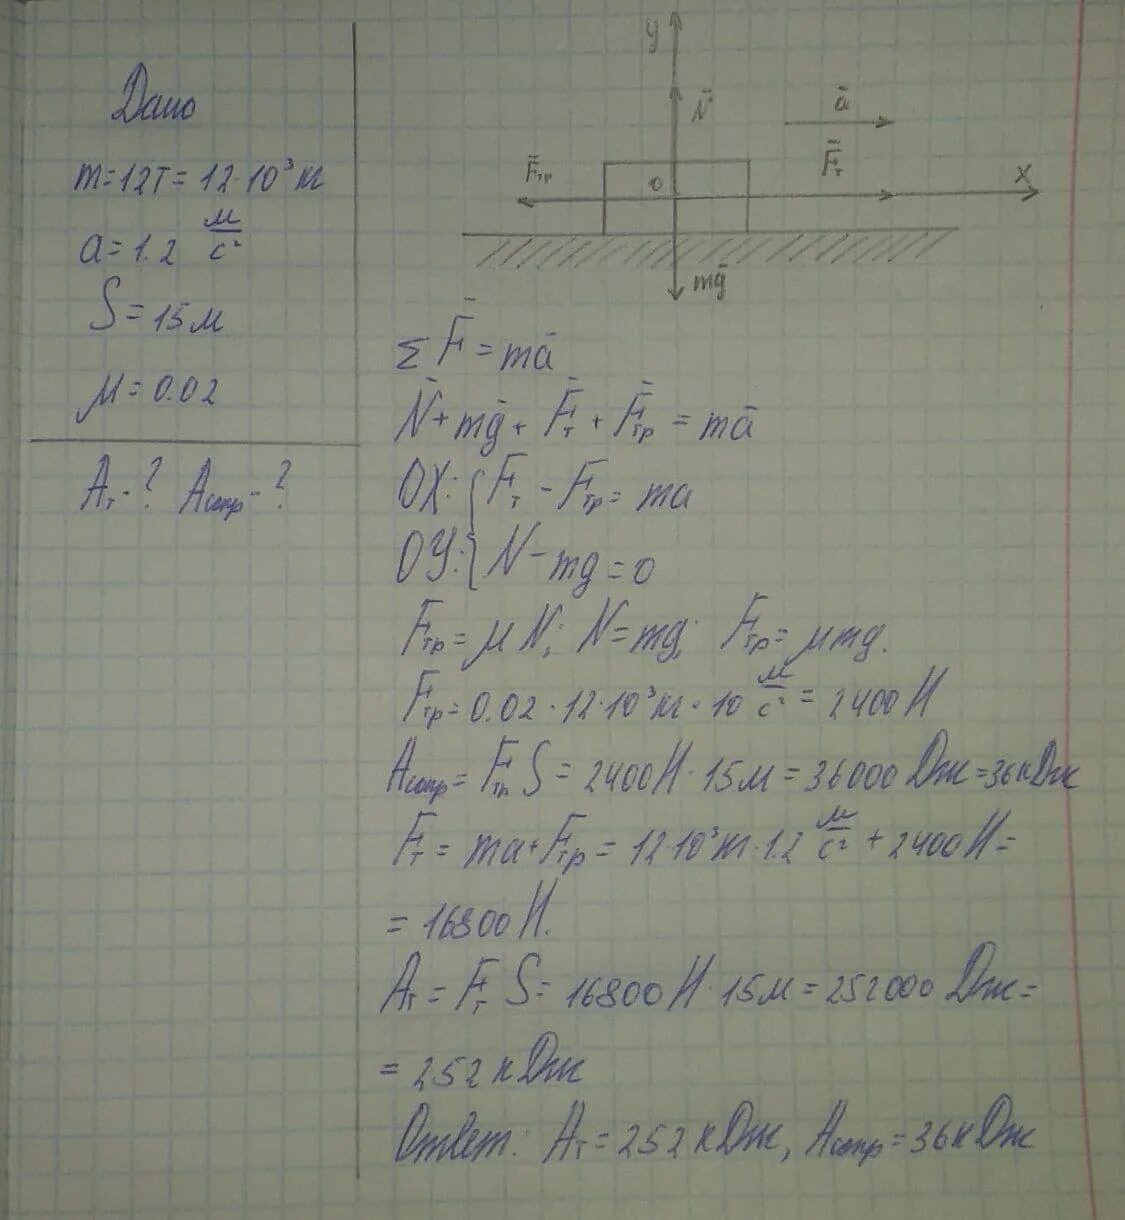 Дано
m=12т=12·10³кг
a=1.2 м/с²
S=15м
μ=0.02
Aт-? Aсопр-?
y
N̄
ā
F̄тр
F̄т
0
X
mḡ
ΣF̄=mā
N̄+mḡ+F̄т+F̄тр=mā
OX: Fт-Fтр=ma
OY: N-mg=0
Fтр=μN; N=mg; Fтр=μmg.
Fтр=0.02·12·10³кг·10 м/с²=2400Н
Aсопр=Fтр S=2400Н·15м=36000Дж=36кДж
Fт=ma+Fтр=12·10³кг·1.2 м/с²+2400Н=
=16800Н.
Aт=Fт S=16800Н·15м=252000Дж=
=252кДж
Ответ: Aт=252кДж, Aсопр=36кДж